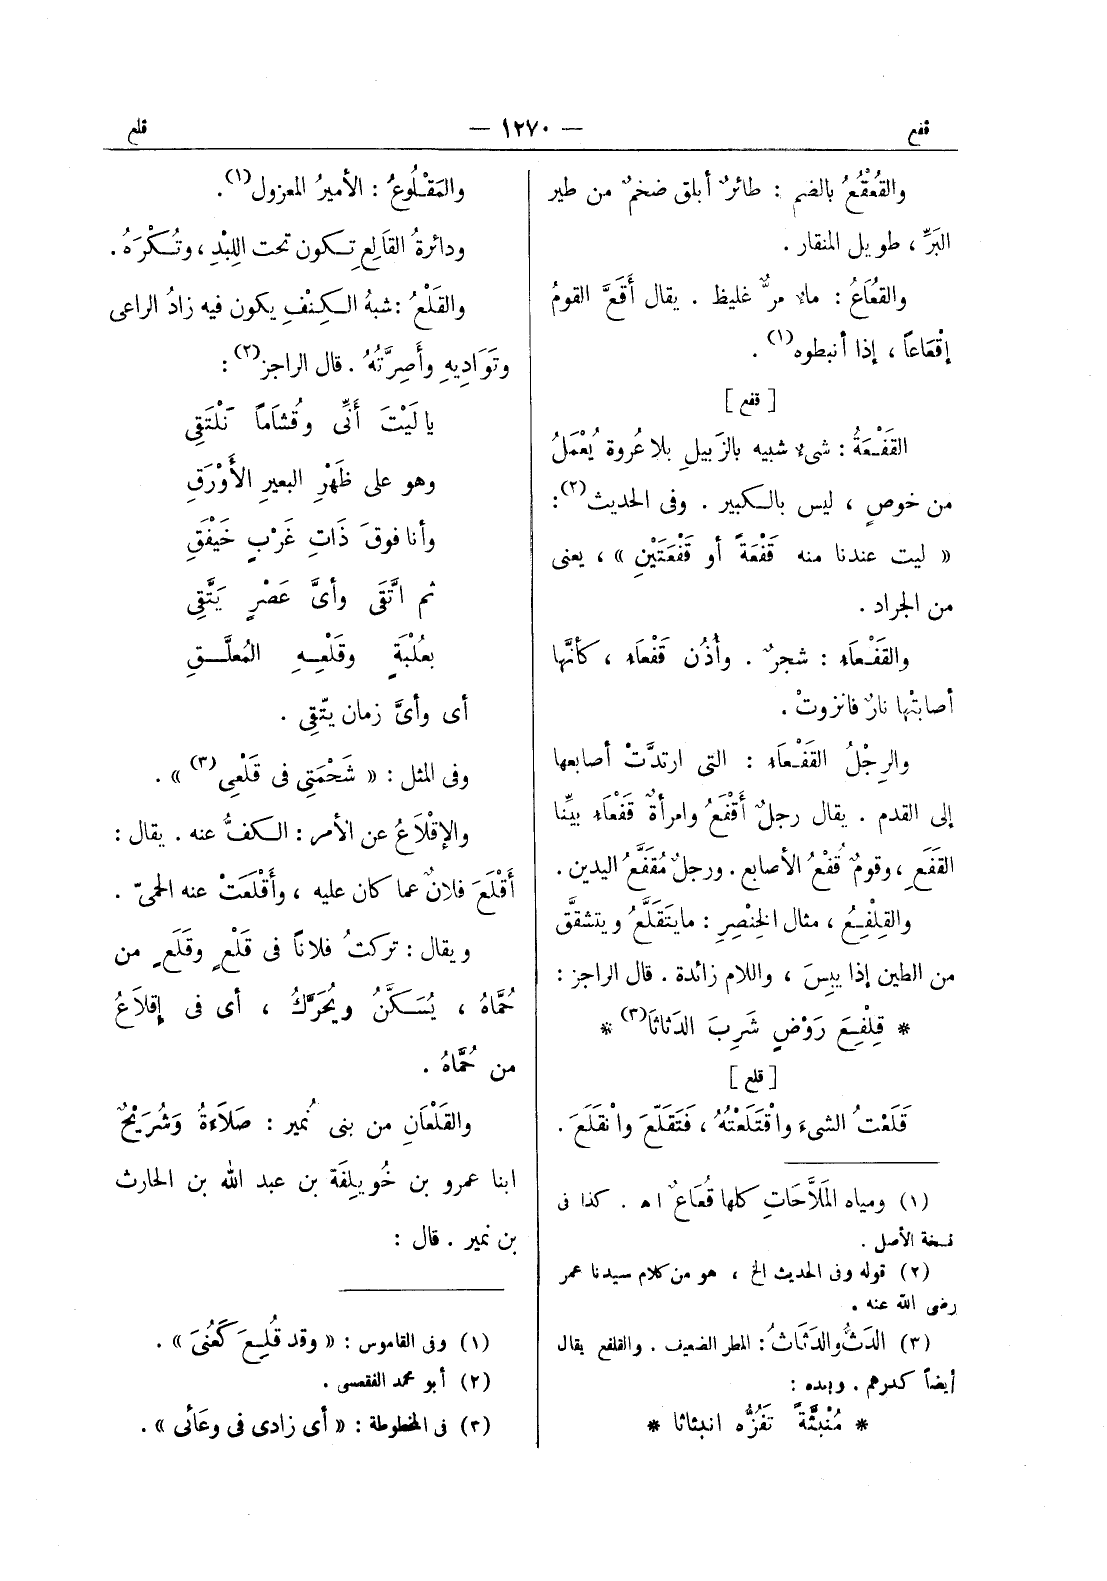 قفع — ١٢٧٠ — قلع
والقُعْقُعُ بالضم : طائرٌ أبلق ضخمٌ من طير
البَرِّ ، طويل المنقار .
والقُعَاعُ : ماءٌ مرٌّ غليظ . يقال أَقَعَّ القومُ
إقْعَاعاً ، إذا أنبطوه(١) .
[ قفع ]
القَفْعَةُ : شىء شبيه بالزَبيلِ بلا عُروة يُعْمَلُ
من خوصٍ ، ليس بالكبير . وفى الحديث(٢) :
« ليت عندنا منه قَفْعَةً أو قَفْعَتَيْنِ » ، يعنى
من الجراد .
والقَفْعَاء : شجرٌ . وأُذُن قَفْعَاء ، كأنَّها
أصابتْها نارٌ فانزوتْ .
والرِجْلُ القَفْعَاء : التى ارتدَّتْ أصابعها
إلى القدم . يقال رجلٌ أَقْفَعُ وامرأةٌ قَفْعَاء بيِّنا
القَفَعِ ، وقومٌ قُفْعُ الأصابع . ورجلٌ مُقَفَّعُ اليدين .
والقِلْفِعُ ، مثال الخِنْصِرِ : مايَتَقَلَّعُ ويتشقَّق
من الطين إذا يبِسَ ، واللام زائدة . قال الراجز :
* قِلْفِعَ رَوْضٍ شَرِبَ الدَثاثَا(٣) *
[ قلع ]
قَلَعْتُ الشىءَ واقْتَلَعْتُهُ ، فَتَقَلّعَ وانْقَلَعَ .
(١) ومياه المَلاَّحَاتِ كلها قُعَاعٌ اه . كذا فى
نسخة الأصل .
(٢) قوله وفى الحديث الخ ، هو من كلام سيدنا عمر
رضى الله عنه .
(٣) الدَثُّ والدَثَاثُ : المطر الضعيف . والقلفع يقال
أيضاً كدرهم . وبعده :
* مُنْبَثَّةً تَفُزُّه انبثاثا *
والمَقْلُوعُ : الأميرُ المعزول(١) .
ودائرةُ القَالِعِ تكون تحت اللِبْدِ ، وتُكْرَهُ .
والقَلْعُ : شبهُ الكِنْفِ يكون فيه زادُ الراعى
وتَوَادِيهِ وأَصِرَّتُهُ . قال الراجز(٢) :
يا لَيْتَ أَنِّى وقُشَاماً نَلْتَقِى
وهو على ظَهْرِ البعيرِ الأَوْرَقِ
وأنا فوقَ ذَاتِ غَرْبٍ خَيْفَقِ
ثم اتَّقَى وأىَّ عَصْرٍ يَتَّقِى
بعُلْبَةٍ وقَلْعِهِ المُعلَّقِ
أى وأىَّ زمان يتّقِى .
وفى المثل : « شَحْمَتِى فى قَلْعِى(٣) » .
والإقْلاَعُ عن الأمر : الكفُّ عنه . يقال :
أَقْلَعَ فلانٌ عما كان عليه ، وأَقْلَعَتْ عنه الحمىّ .
ويقال : تركتُ فلاناً فى قَلْعٍ وقَلَعٍ من
حُمَّاهُ ، يُسَكَّنُ ويُحَرَّكُ ، أى فى إقلاَعٍ
من حُمَّاهُ .
والقَلْعَانِ من بنى نُمير : صَلاَءَةُ وَشُرَيْحٌ
ابنا عمرو بن خُوَيلِفَة بن عبد الله بن الحارث
بن نمير . قال :
(١) وفى القاموس : « وقد قُلِعَ كَعُنِىَ » .
(٢) أبو محمد الفقعسى .
(٣) فى المخطوطة : « أى زادى فى وعَائى » .